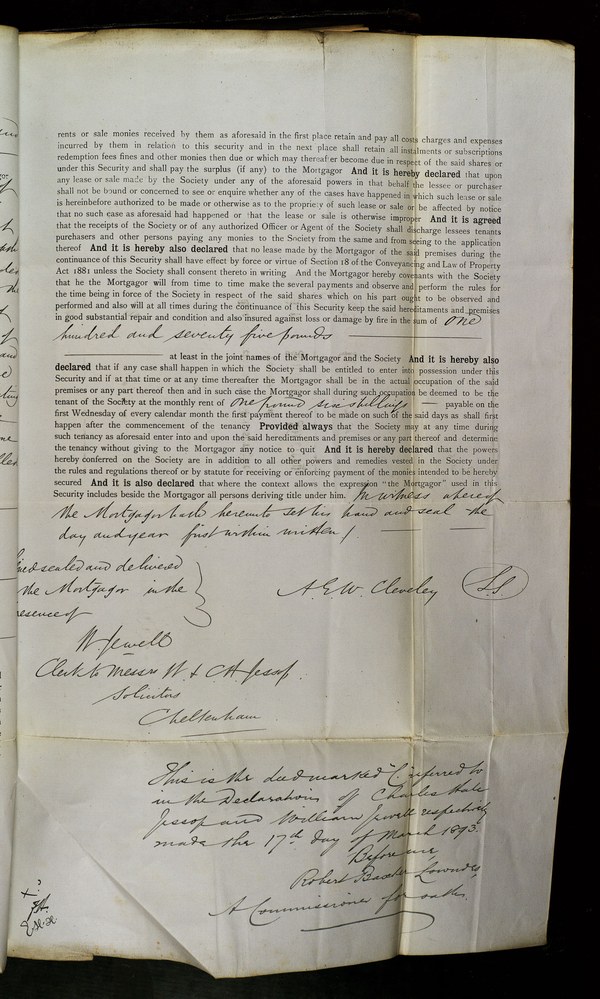 rents or sale monies received by them as aforesaid in the first place retain and pay all costs charges and expenses
incurred by them in relation to this security and in the next place shall retain all instalments or subscriptions
redemption fees fines and other monies then due or which may thereafter become due in respect of the said shares or
under this Security and shall pay the surplus (if any) to the Mortgagor And it is hereby declared that upon
any lease or sale made by the Society under any of the aforesaid powers in that behalf the lessee or purchaser
shall not be bound or concerned to see or enquire whether any of the cases have happened in which such lease or sale
is hereinbefore authorized to be made or otherwise as to the propriety of such lease or sale or be affected by notice
that no such case as aforesaid had happened or that the lease or sale is otherwise improper And it is agreed
that the receipts of the Society or of any authorized Officer or Agent of the Society shall discharge lessees tenants
purchasers and other persons paying any monies to the Society from the same and from seeing to the application
thereof And it is hereby also declared that no lease made by the Mortgagor of the said premises during the
continuance of this Security shall have effect by force or virtue of Section 18 of the Conveyancing and Law of Property
Act 1881 unless the Society shall consent thereto in writing And the Mortgagor hereby covenants with the Society
that he the Mortgagor will from time to time make the several payments and observe and perform the rules for
the time being in force of the Society in respect of the said shares which on his part ought to be observed and
performed and also will at all times during the continuance of this Security keep the said hereditaments and premises
in good substantial repair and condition and also insured against loss or damage by fire in the sum of One
hundred and seventy five pounds
at least in the joint names of the Mortgagor and the Society And it is hereby also
declared that if any case shall happen in which the Society shall be entitled to enter into possession under this
Security and if at that time or at any time thereafter the Mortgagor shall be in the actual occupation of the said
premises or any part thereof then and in such case the Mortgagor shall during such occupation be deemed to be the
tenant of the Society at the monthly rent of One pound six shillings — payable on the
first Wednesday of every calendar month the first payment thereof to be made on such of the said days as shall first
happen after the commencement of the tenancy Provided always that the Society may at any time during
such tenancy as aforesaid enter into and upon the said hereditaments and premises or any part thereof and determine
the tenancy without giving to the Mortgagor any notice to quit And it is hereby declared that the powers
hereby conferred on the Society are in addition to all other powers and remedies vested in the Society under
the rules and regulations thereof or by statute for receiving or enforcing payment of the monies intended to be hereby
secured And it is also declared that where the context allows the expression "the Mortgagor" used in this
Security includes beside the Mortgagor all persons deriving title under him. In witness whereof
the Mortgagor hath hereunto set his hand and seal the
day and year first within written /
sealed and delivered
the Mortgagor in the
presence of
A. E. W. Cleveley
L.S
W. Jewell
Clerk to Messrs W. & C. H. Jessop
Solicitors
Cheltenham
This is the deed marked "C" referred to
in the Declarations of Charles Hale
Jessop and William Jewell respectively
made this 17th day of March 1893.
Before me,
Robert Baxter Lowndes
A Commissioner for oaths.